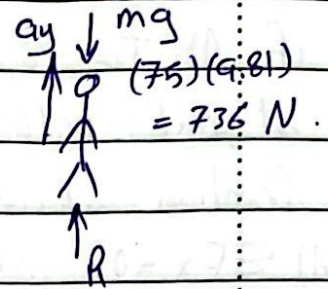 ay mg
(75)(9.81)
= 736 N.
R